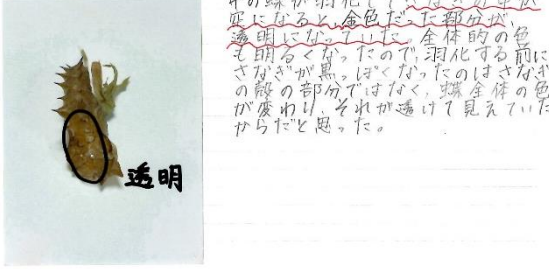 中の蝶が羽化して、さなぎの中が
空になると、金色だった部分が、
透明になっていた。全体的の色
も明るくなったので、羽化する前に
さなぎが黒っぽくなったのはさなぎ
の殻の部分ではなく、蝶全体の色
が変わり、それが透けて見えていた
からだと思った。
透明